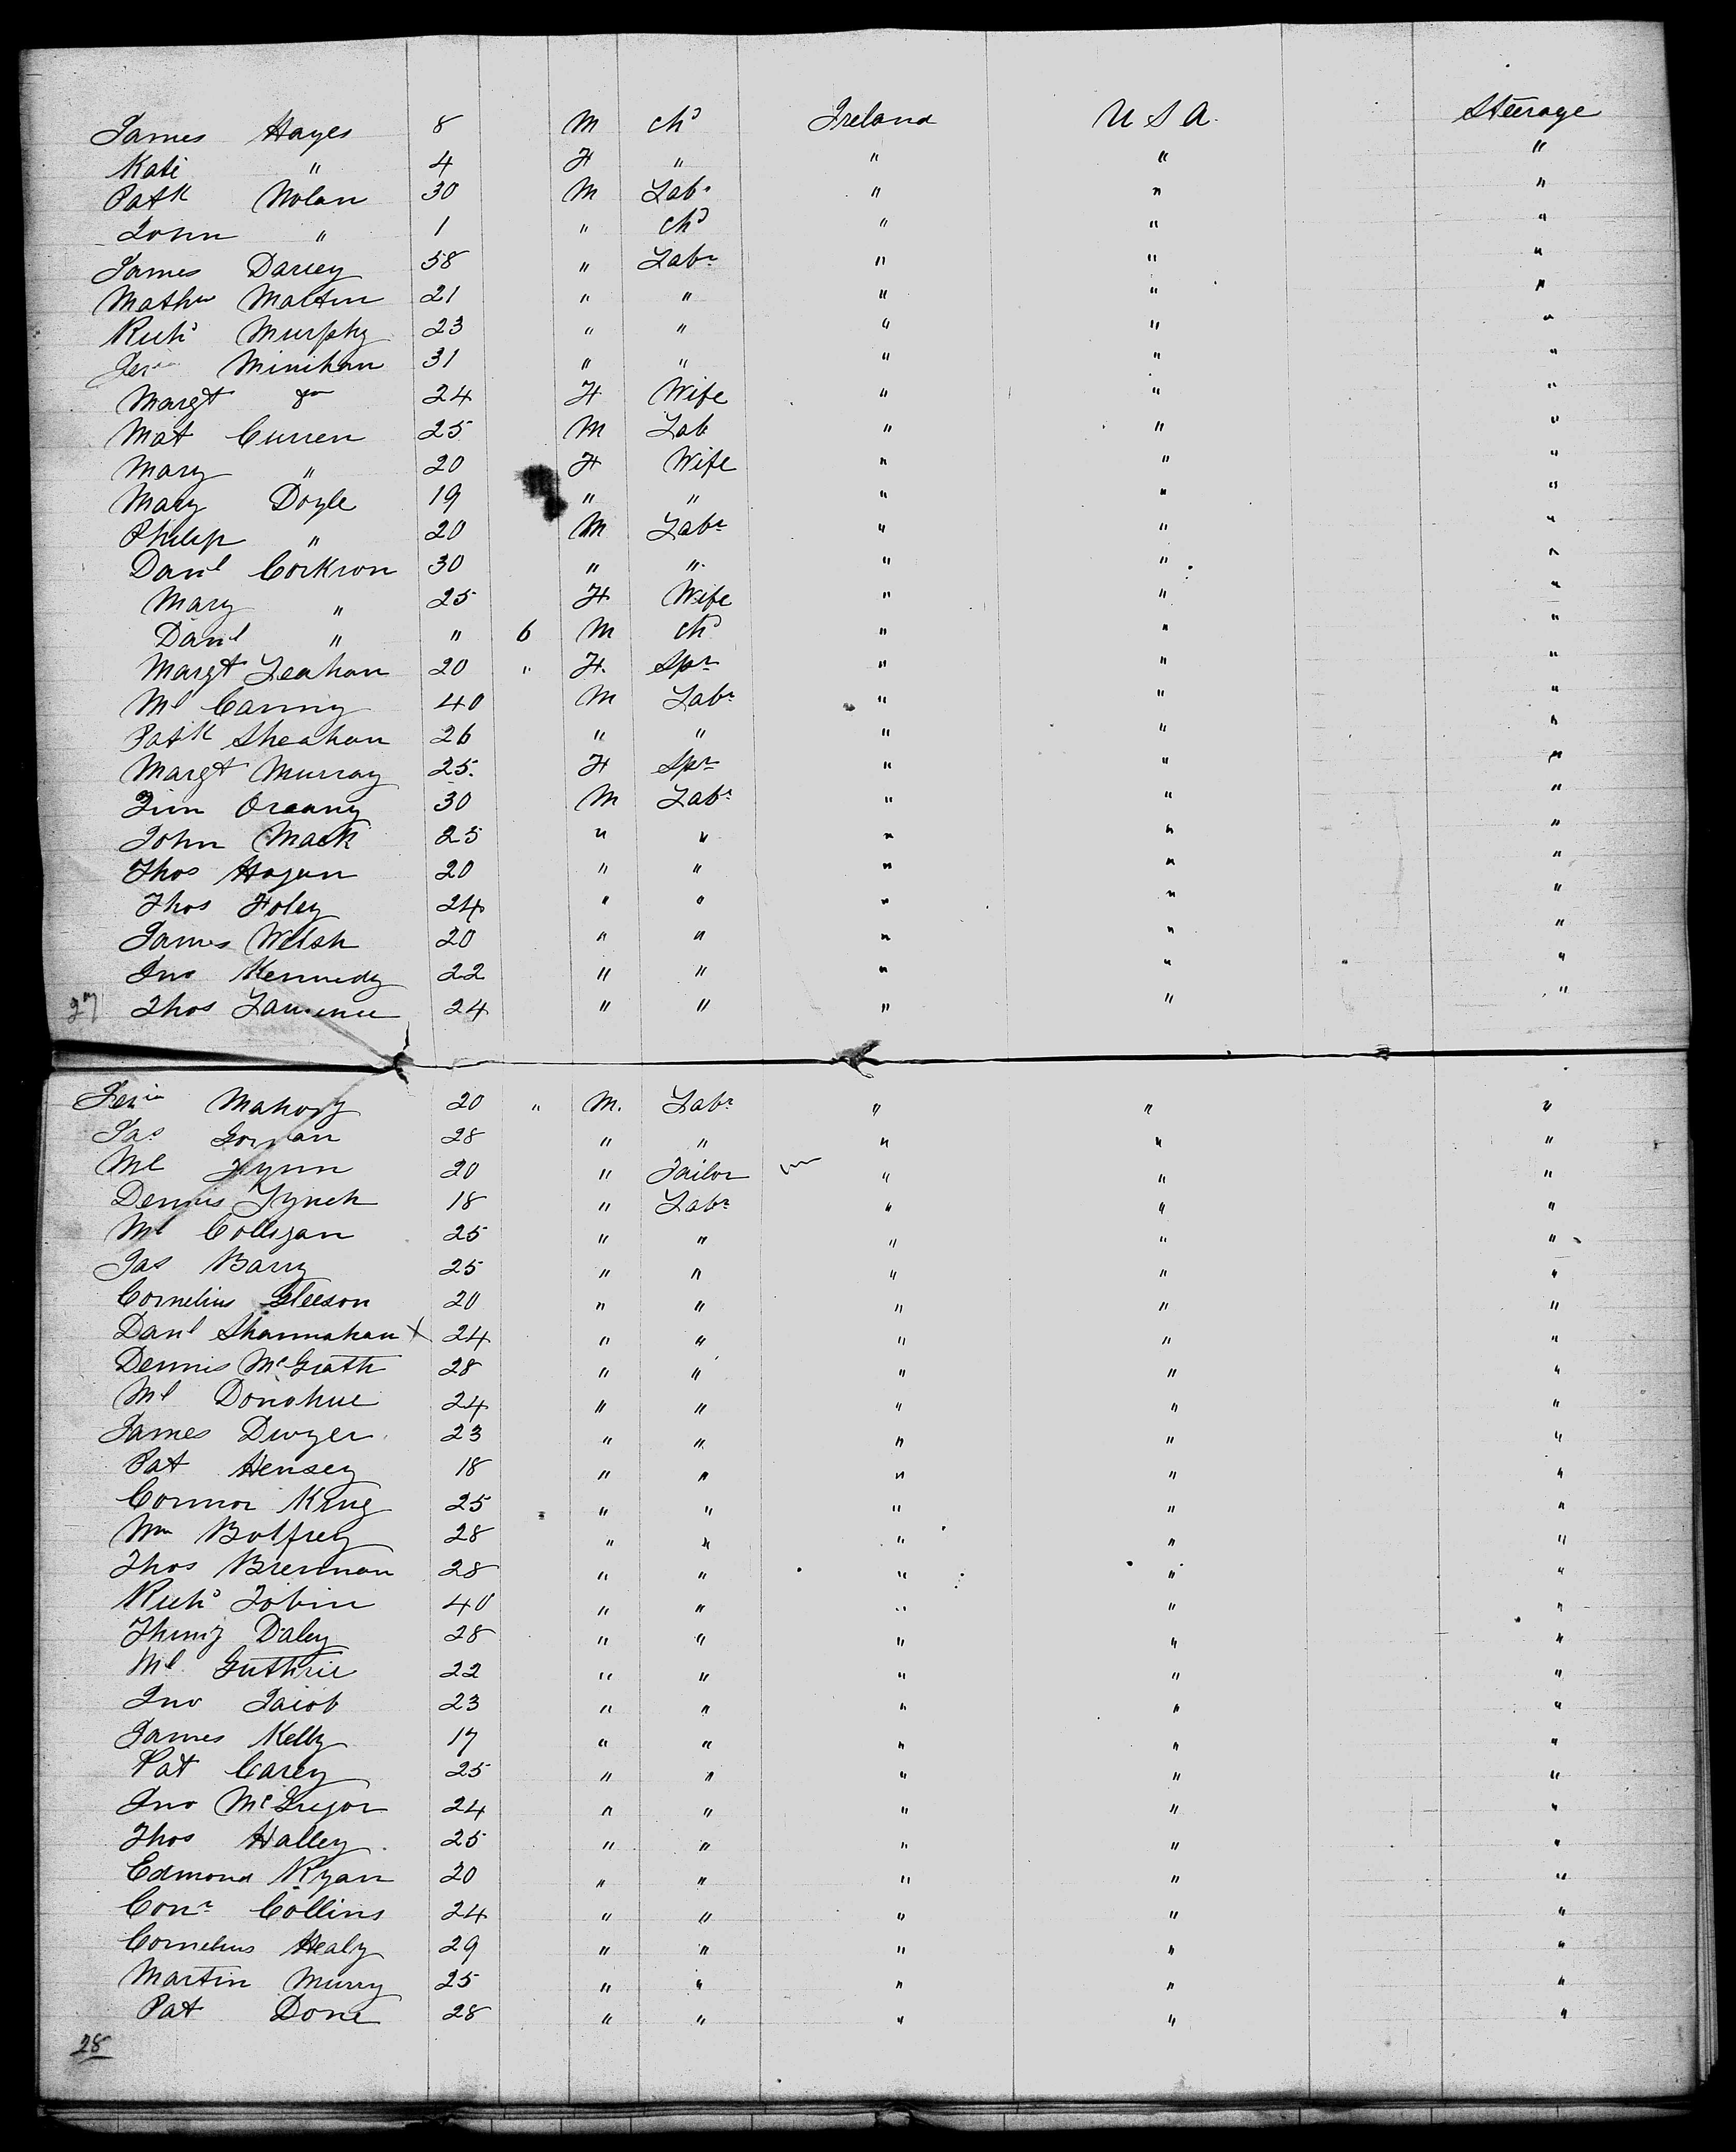 James Hayes 8 M chd Ireland U S A. Steerage
Kate " 4 F " " " "
Patk Nolan 30 M Labr " " "
John " 1 " chd " " "
James Darcey 58 " Labr " " "
Mathw Martin 21 " " " " "
Richd Murphy 23 " " " " "
Minihan 31 " " " " "
Margt do 24 F Wife " " "
Mat Curren 25 M Lab " " "
Mary " 20 F Wife " " "
Mary Doyle 19 " " " " "
Philip " 20 M Labr " " "
Danl Corkron 30 " " " " "
Mary " 25 F Wife " " "
Danl " " 6 M chd " " "
Margt Leahan 20 " F. Spr " " "
Ml Canny 40 M Labr " " "
Patk Sheahan 26 " " " " "
Margt Murray 25. F Spr " " "
Tim 30 M Labr " " "
John Mack 25 " " " " "
Thos Hogan 20 " " " " "
Thos Foley 24 " " " " "
James Welsh 20 " " " " "
Jno Kennedy 22 " " " " "
27 Thos Lawrence 24 " " " " "
Jeria Mahony 20 " M. Labr " " "
Jas Gorman 28 " " " " "
Ml Flynn 20 " Tailor " " "
Dennis Lynch 18 " Labr " " "
Ml Colligan 25 " " " " "
Jas Barry 25 " " " " "
Cornelius Gleeson 20 " " " " "
Danl Shannahan X 24 " " " " "
Dennis McGrath 28 " " " " "
Ml Donohue 24 " " " " "
James Dwyer 23 " " " " "
Pat Hensey 18 " " " " "
Connor King 25 " " " " "
Wm Bolfrey 28 " " " " "
Thos Brennan 28 " " " " "
Richd Tobin 40 " " " " "
Daley 28 " " " " "
Ml Guthrie 22 " " " " "
Jno Jacob 23 " " " " "
James Kelly 17 " " " " "
Pat Carey 25 " " " " "
Jno McGregor 24 " " " " "
Thos Halley 25 " " " " "
Edmond Ryan 20 " " " " "
Conr Collins 24 " " " " "
Cornelius Healy 29 " " " " "
Martin Murry 25 " " " " "
Pat Done 28 " " " " "
28